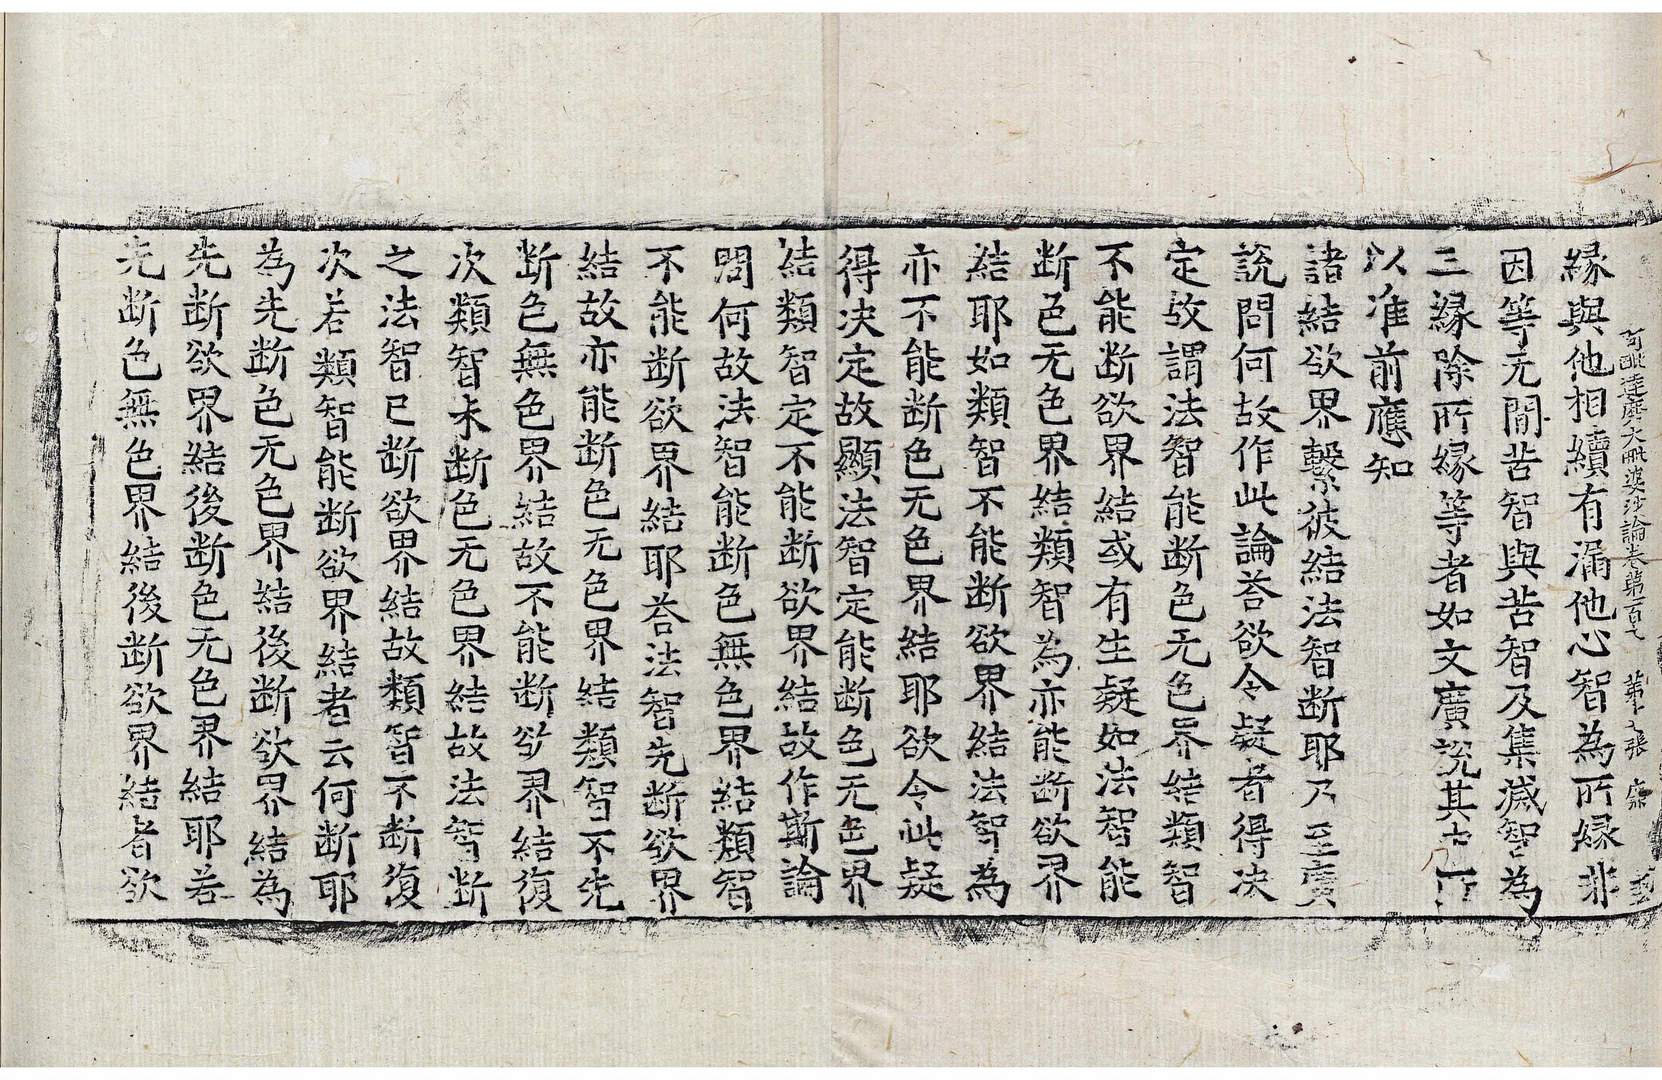 阿毗達磨大毗婆沙論卷第百七　第十七張
緣與他相續有漏他心智為所緣非
因等无閒苦智與苦智及集滅智為
三緣除所緣等者如文廣說其
以准前應知
諸結欲界繫彼結法智断耶乃至廣
說問何故作此論荅欲令疑者得决
定故謂法智能断色无色界結類智
不能断欲界結或有生疑如法智能
断色无色界結類智為亦能断欲界
結耶如類智不能断欲界結法智為
亦不能断色无色界結耶欲令此疑
得决定故顯法智定能断色无色界
結類智定不能断欲界結故作斯論
問何故法智能断色無色界結類智
不能断欲界結耶荅法智先断欲界
結故亦能断色无色界結類智不先
断色無色界結故不能断欲界結復
次類智未断色无色界結故法智断
之法智已断欲界結故類智不断復
次若類智能断欲界結者云何断耶
為先断色无色界結後断欲界結為
先断欲界結後断色无色界結耶若
先断色無色界結後断欲界結者欲